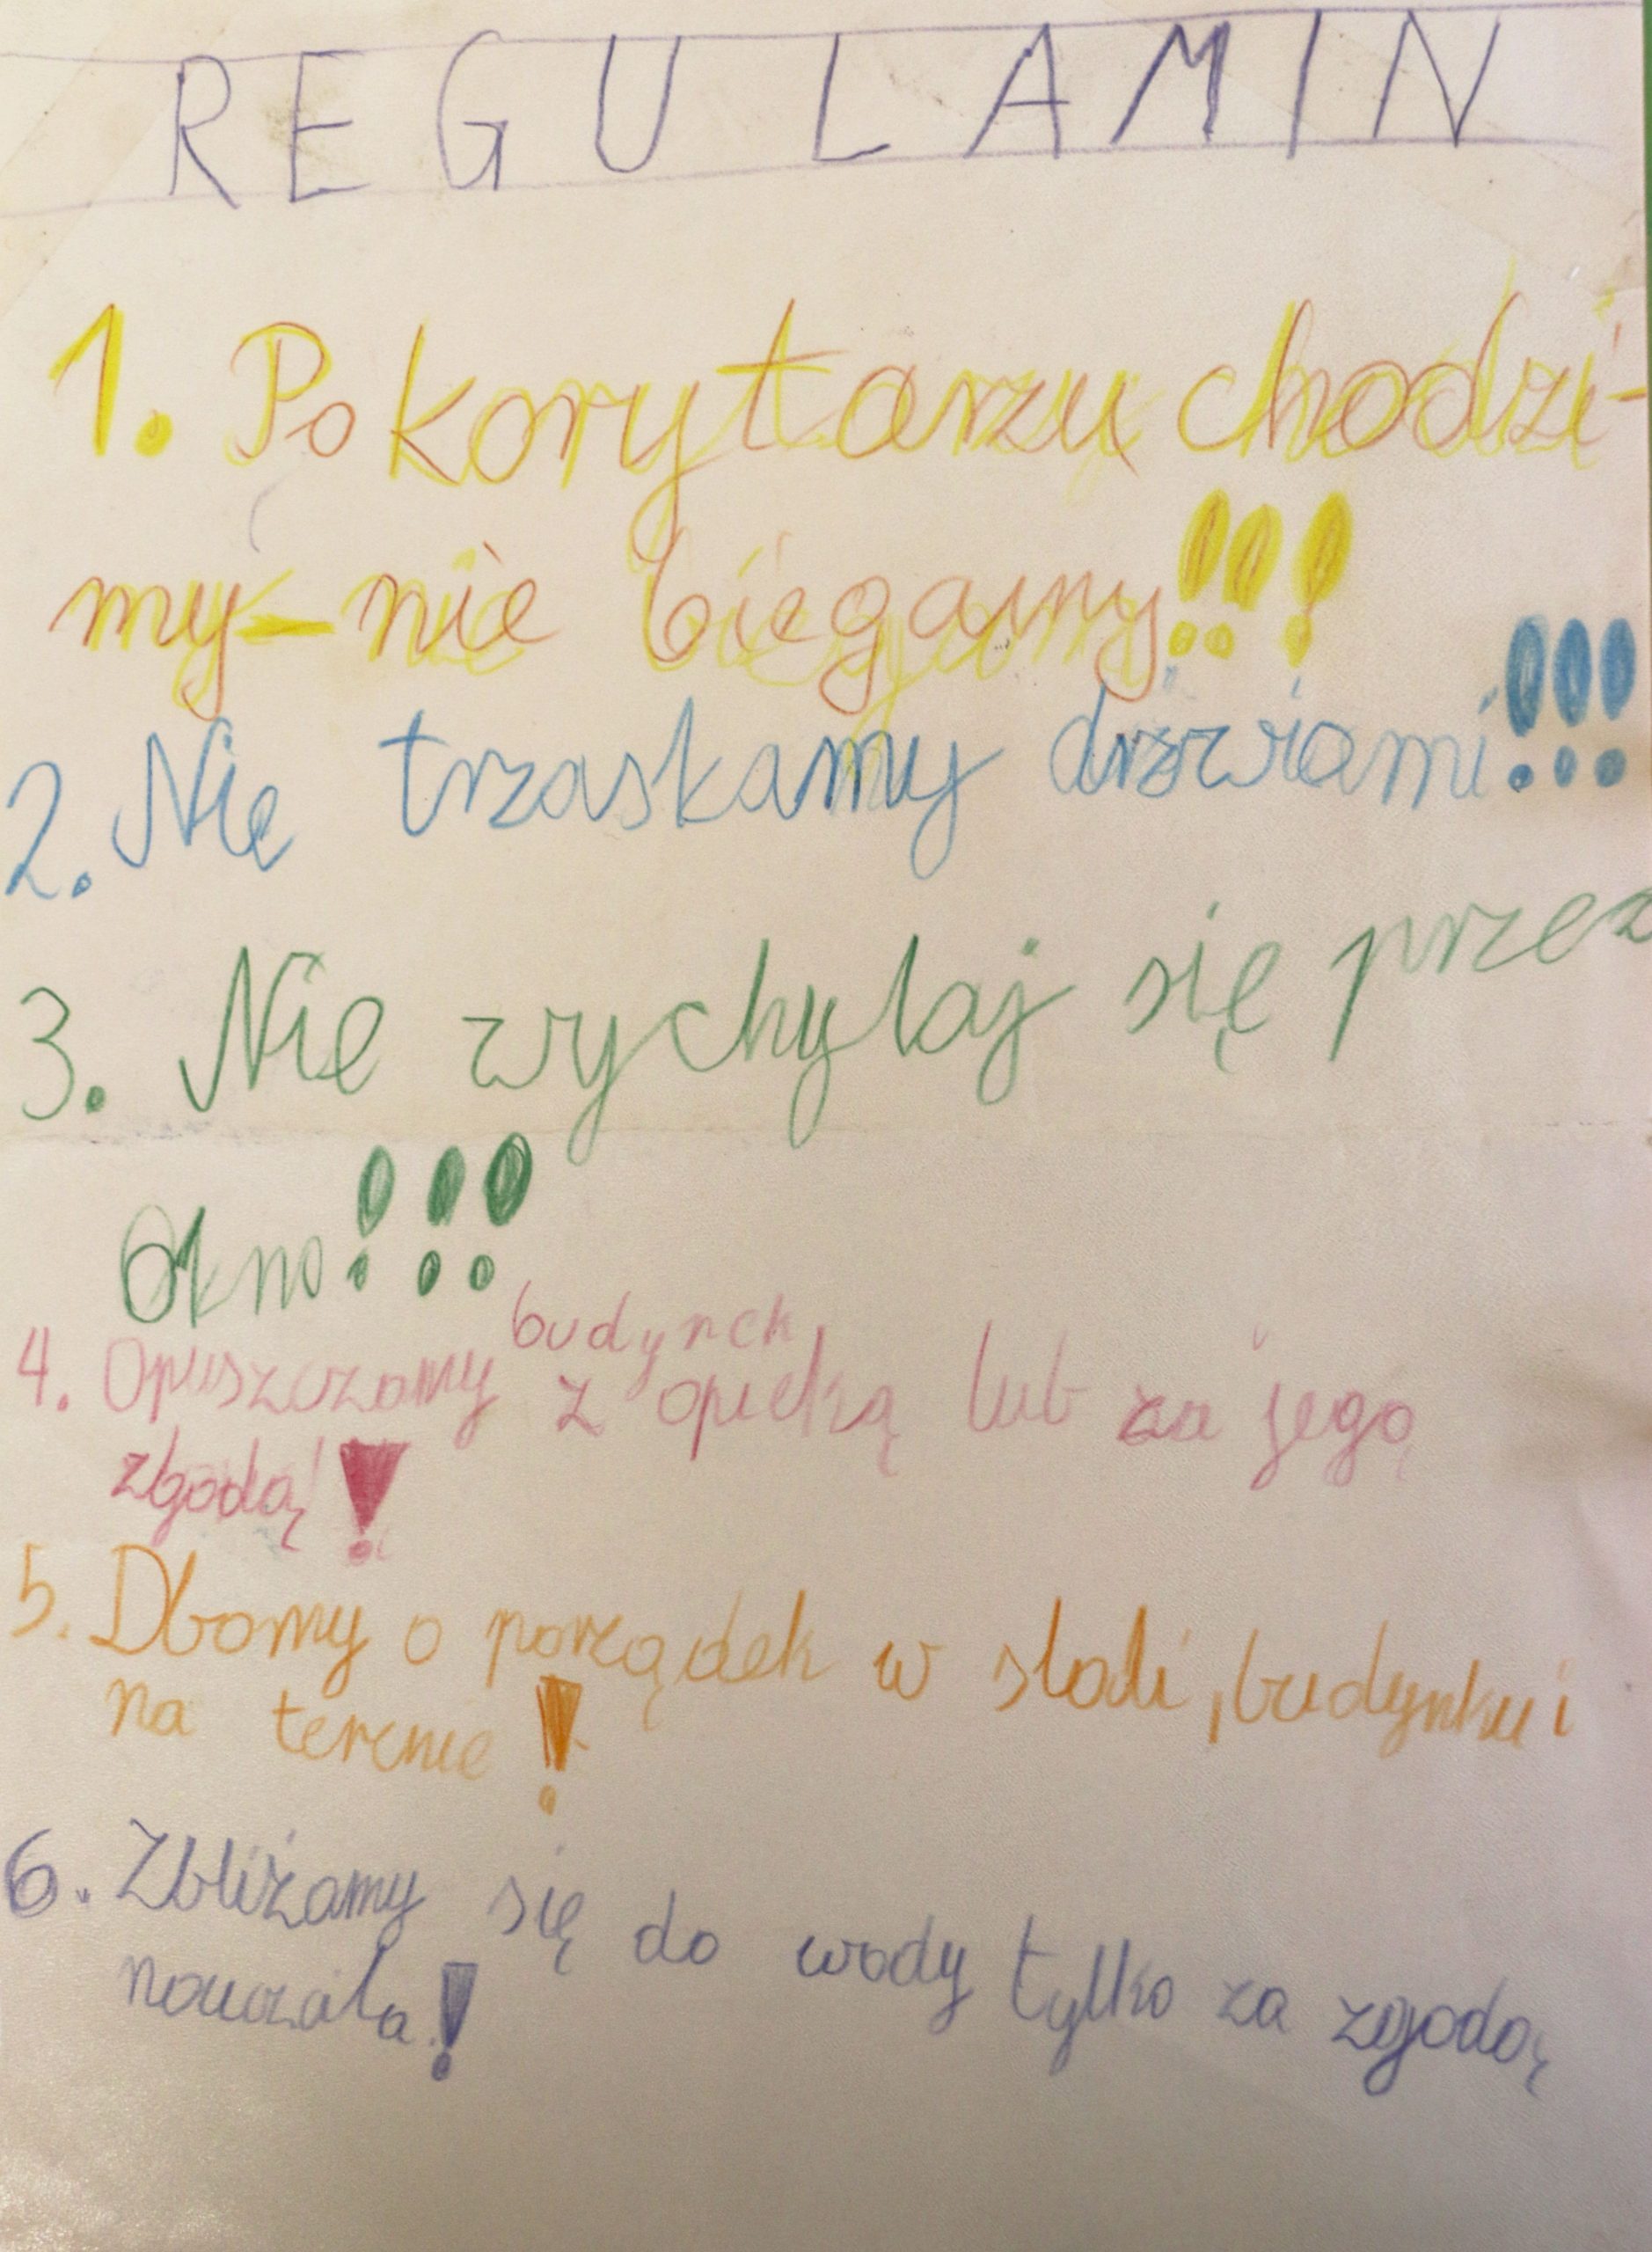 REGULAMIN
1. Po korytarzu chodzi-
my-nie biegamy!!!
2. Nie trzaskamy drzwiami!!!
3. Nie wychylaj się przez
okno!!!
budynek
4. Opuszczamy z opieką lub za jego
zgodą!!
5. Dbamy o porządek w
budynku i
na terenie!
6. Zbliżamy się do wody tylko za zgodą